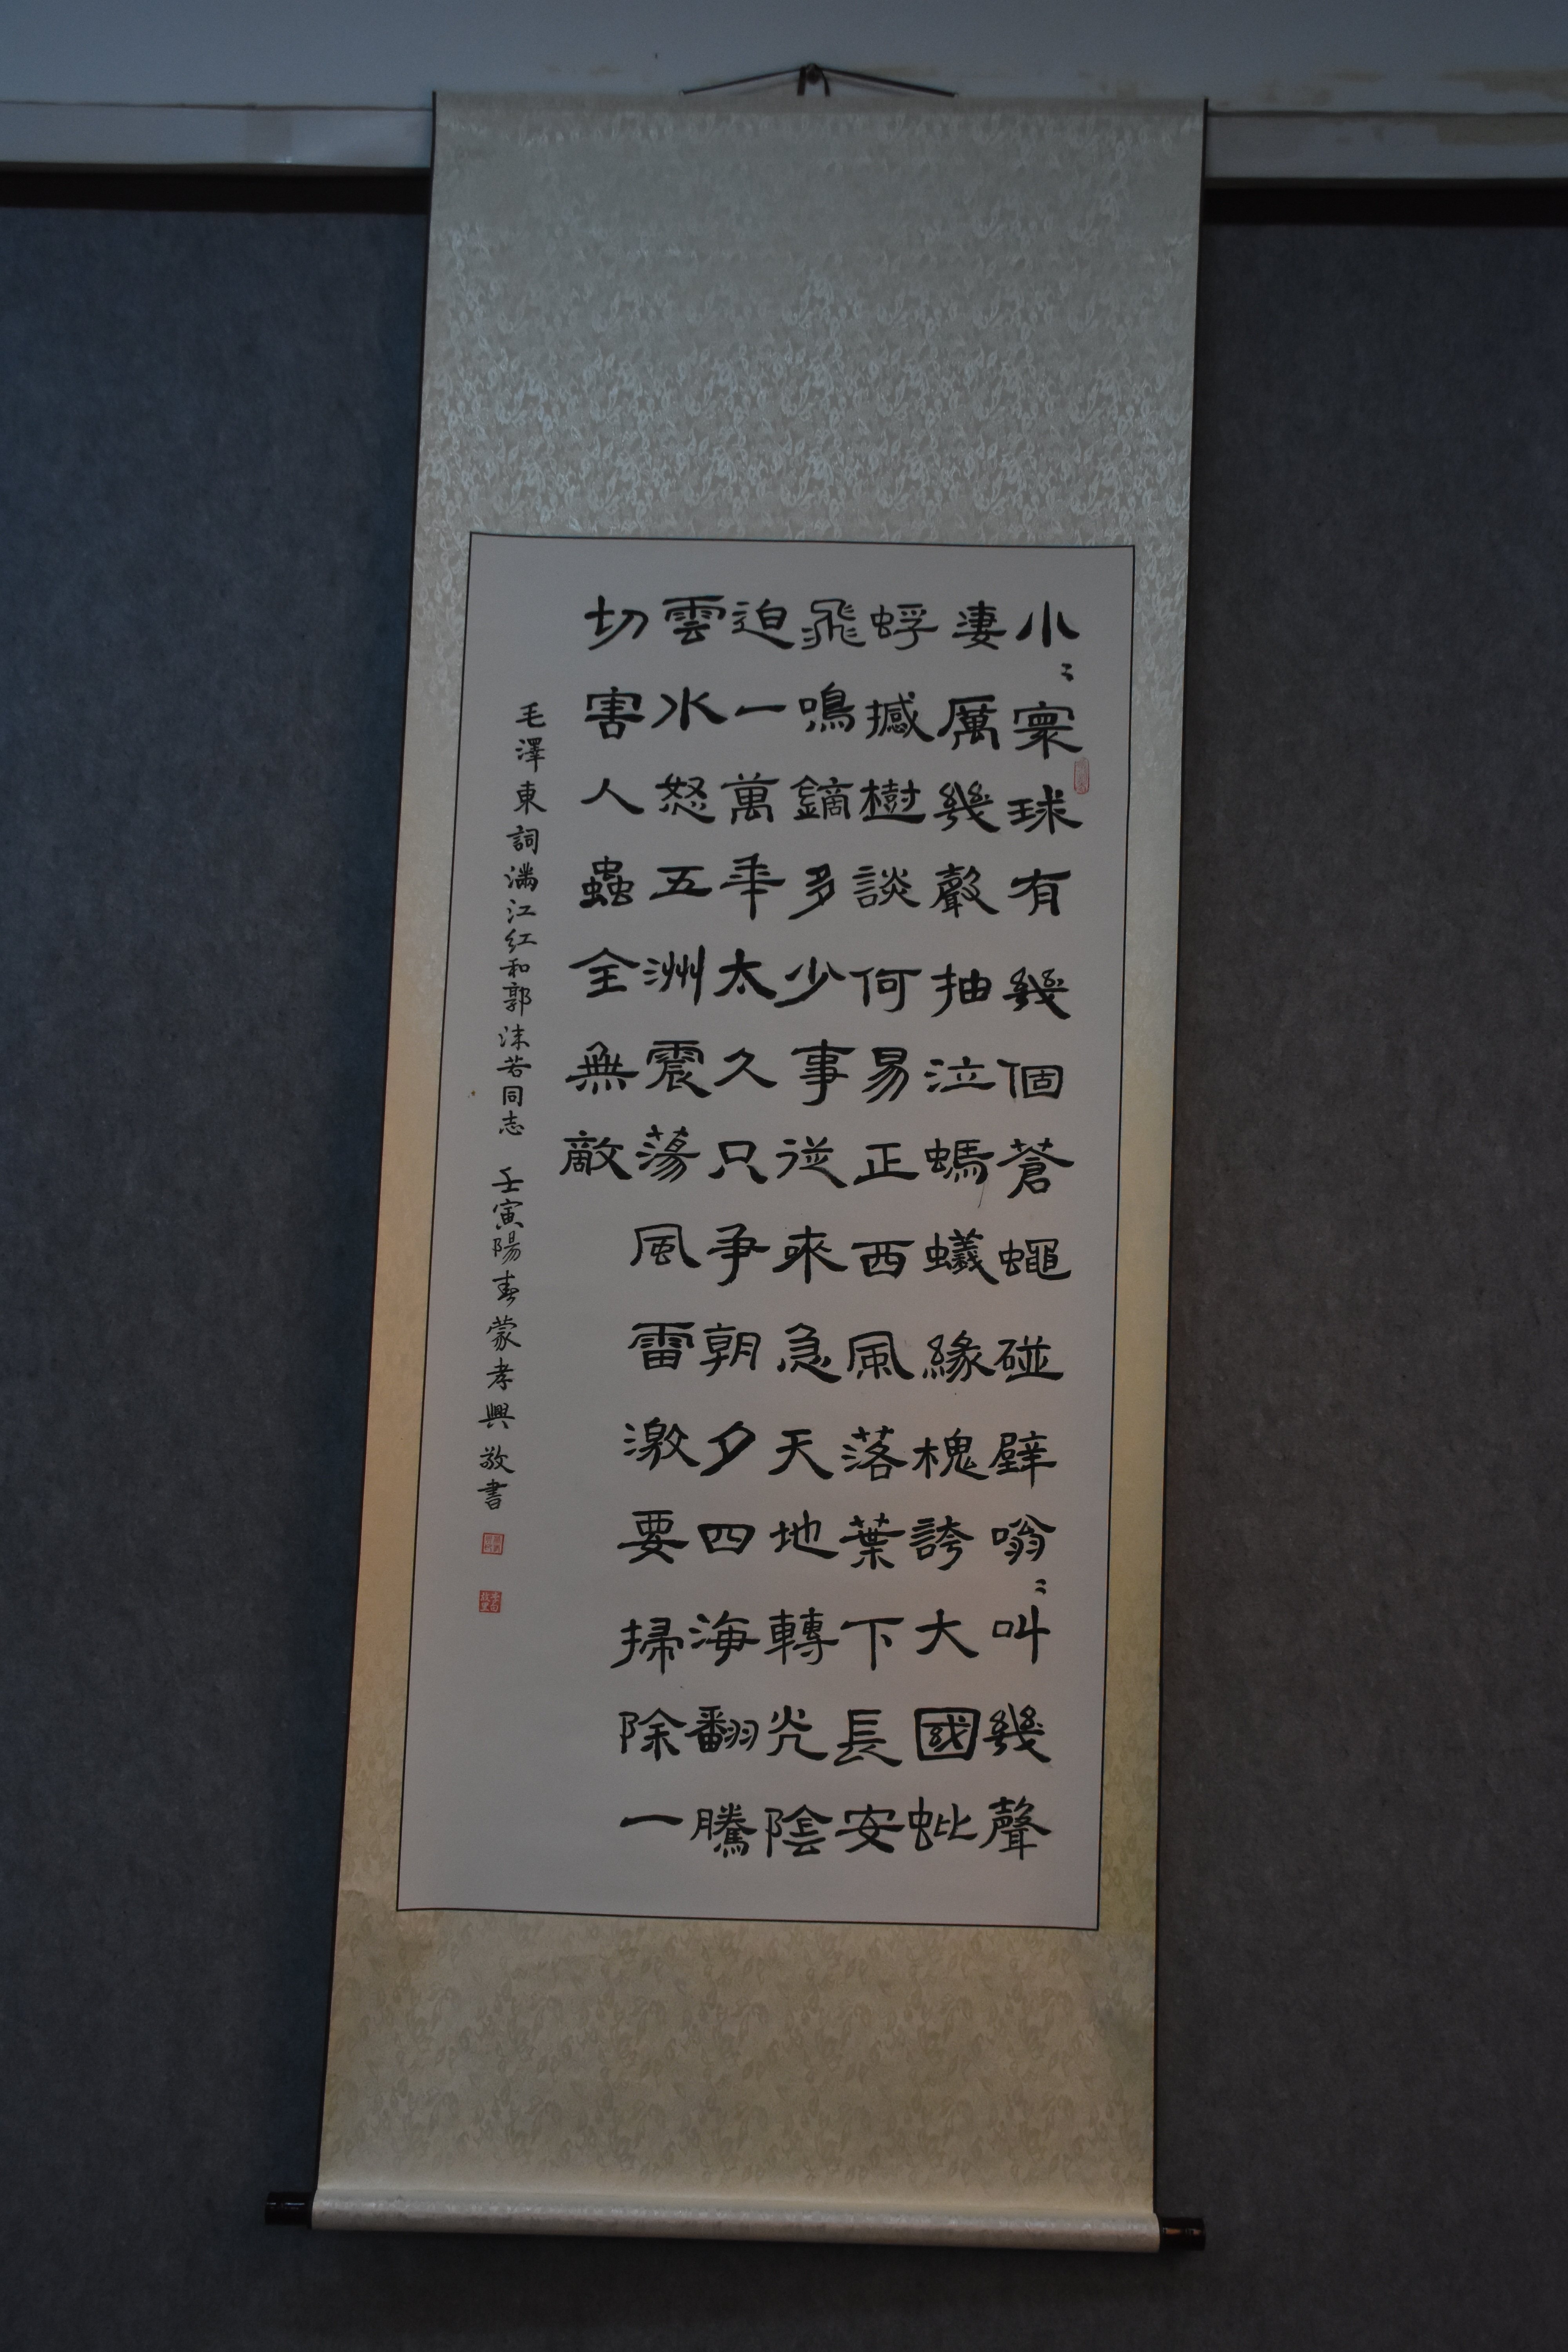 小〻寰球有幾個蒼蠅碰壁嗡〻叫幾聲
淒厲幾聲抽泣螞蟻緣槐誇大國蚍
蜉撼樹談何易正西風落葉下長安
飛鳴鏑多少事從來急天地轉光陰
迫一萬年太久只爭朝夕四海翻騰
雲水怒五洲震蕩風雷激要掃除一
切害人蟲全無敵
毛澤東詞滿江紅和郭沫若同志 壬寅陽春蒙孝興敬書